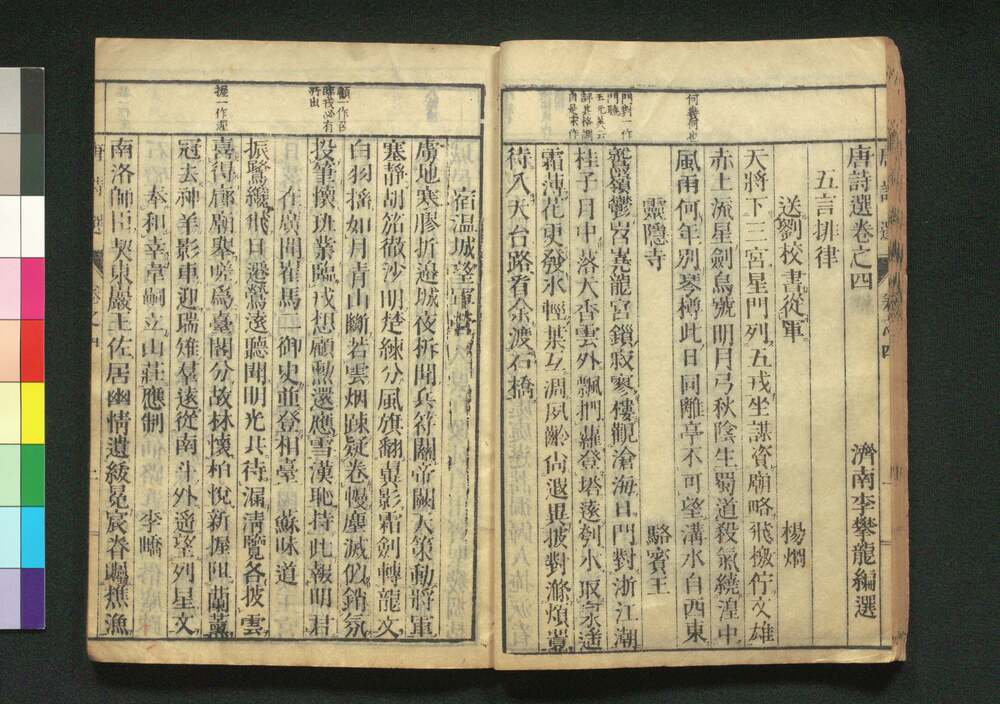 唐詩選卷之四
濟南李攀龍編選
五言排律
送劉校書從軍
楊烱
天將下三宮星門列五戎坐謀資廟略飛檄佇文雄
赤土流星劍烏號明月弓秋陰生蜀道殺氣繞湟中
風雨何年別琴樽此日同離亭不可望溝水自西東
靈隱寺
駱賓王
鷲嶺鬱岧嶤龍宮鎖寂寥樓觀滄海日門對浙江潮
桂子月中落天香雲外飄捫蘿登塔遠刳木取泉遙
霜薄花更發氷輕葉互凋夙齡尚遐異披對滌煩囂
待入天台路看余渡石橋
宿溫城望軍營
虜地寒膠折邊城夜柝聞兵符關帝闕天策動將軍
塞靜胡笳徹沙明楚練分風旗翻翼影霜劍轉龍文
白羽搖如月青山斷若雲烟疎疑卷幔塵滅似銷氛
投筆懷班業臨戎想顧勲還應雪漢恥持此報明君
在廣聞崔馬二御史並登相臺
蘇味道
振鷺纔飛日遷鶯遠聽聞明光共待漏清覽各披雲
喜得廊廟舉嗟爲臺閣分故林懷柏悅新握阻蘭薰
冠去神羊影車迎瑞雉羣遠從南斗外遙望列星文
奉和幸韋嗣立山莊應制
李嶠
南洛師臣契東巖王佐居幽情遺紱冕宸眷矚樵漁
握一作渥